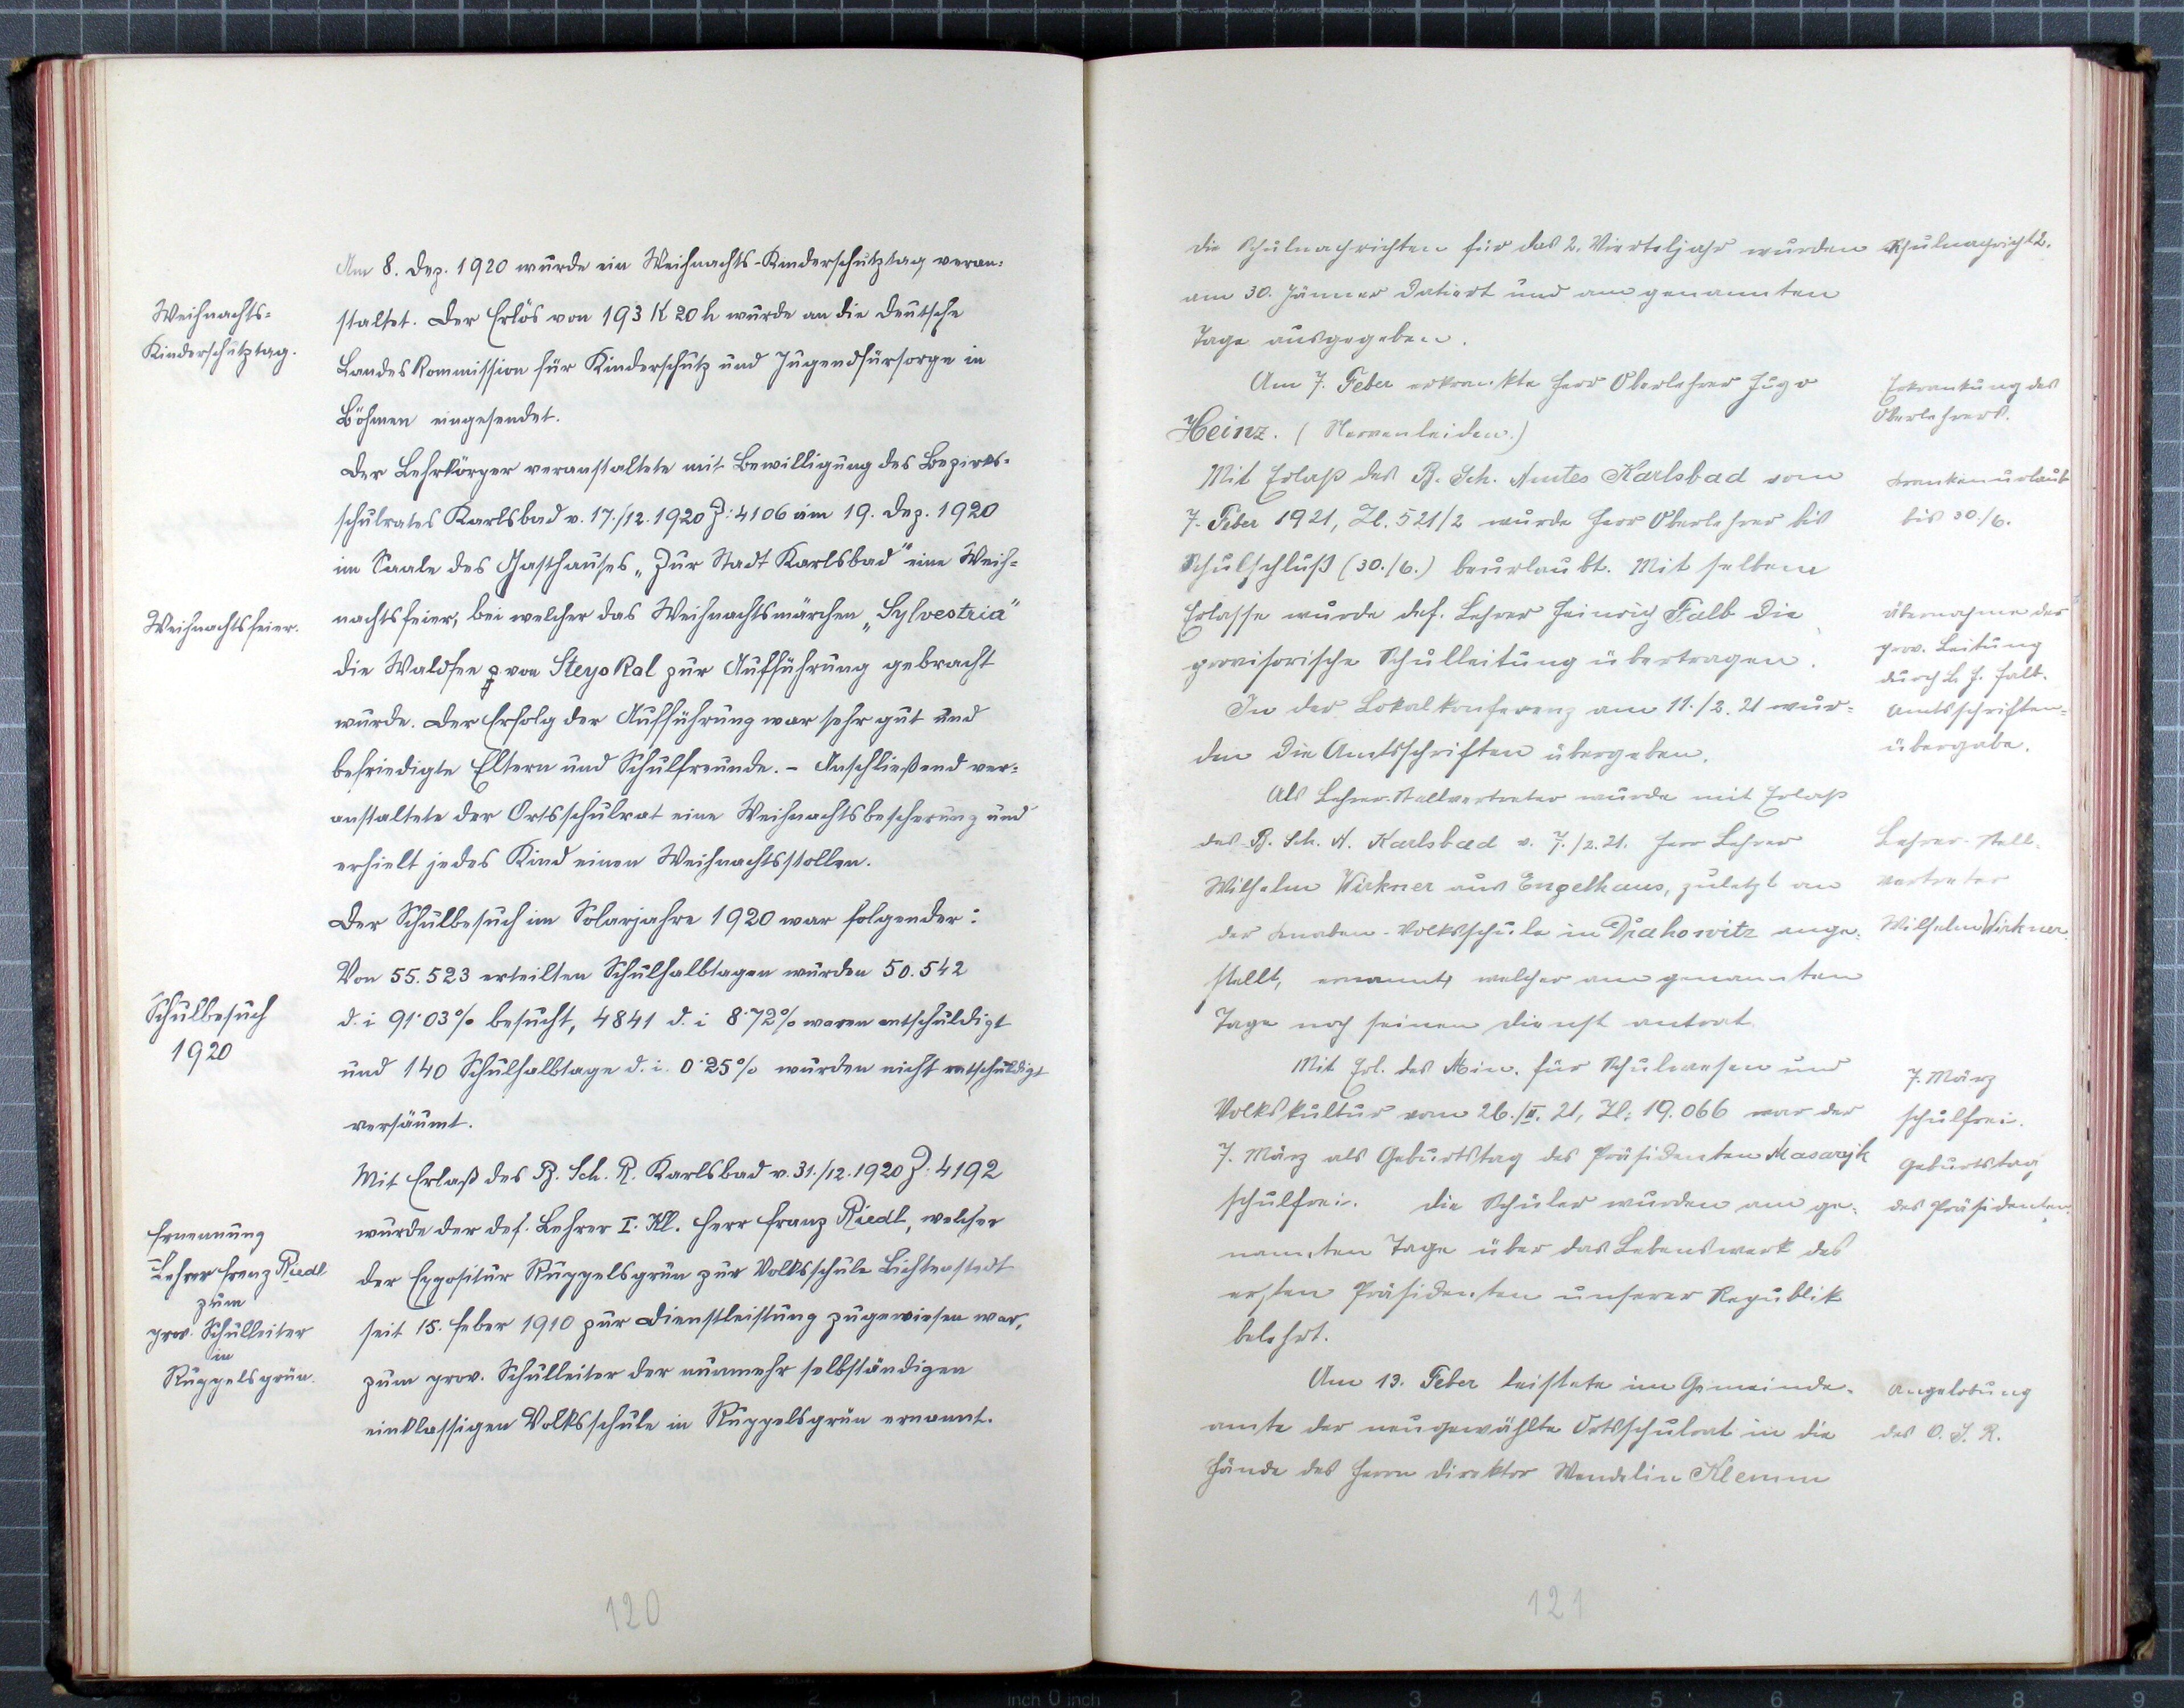 Am 8. Dez. 1920 wurde ein Weihnachts-Kinderschutztag veran-
Weihnachts-
Kinderschutztag.
staltet. Der Erlös von 193 K 20 h wurde an die Deutsche
Landeskommission für Kinderschutz und Jugendfürsorge in
Böhmen eingesendet.
Der Lehrkörper veranstaltete mit Bewilligung des Bezirks-
schulrates Karlsbad v. 17./12. 1920 Z: 4106 am 19. Dez. 1920
im Saale des Gasthauses „Zur Stadt Karlsbad" eine Weih-
Weihnachtsfeier.
nachtsfeier, bei welcher das Weihnachtsmärchen „Sylvestria"
die Waldfee von Steyskal zur Aufführung gebracht
wurde. Der Erfolg der Aufführung war sehr gut und
befriedigte Eltern und Schulfreunde. – Anschließend ver-
anstaltete der Ortsschulrat eine Weihnachtsbescherung und
erhielt jedes Kind einen Weihnachtsstollen.
Der Schulbesuch im Solarjahre 1920 war folgender:
Von 55.523 erteilten Schulhalbtagen wurden 50.542
Schulbesuch
1920
d. i 91·03% besucht, 4841 d. i 8·72% waren entschuldigt
und 140 Schulhalbtage d. i. 0·25% wurden nicht entschuldigt
versäumt.
Mit Erlaß des B. Sch. R. Karlsbad v. 31./12. 1920 Z: 4192
Ernennung
Lehrer Franz Riedl
zum
prov. Schulleiter
in
Ruppelsgrün.
wurde der def. Lehrer I. Kl. Herr Franz Riedl, welcher
der Expositur Ruppelsgrün zur Volksschule Lichtenstadt
seit 15. Feber 1910 zur Dienstleistung zugewiesen war,
zum prov. Schulleiter der nunmehr selbständigen
einklassigen Volksschule in Ruppelsgrün ernannt.
120
Die Schulnachrichten für das 2. Vierteljahr wurden
am 30. Jänner datiert und am genannten
Tage ausgegeben.
Am 7. Feber erkrankte Herr Oberlehrer Hugo
Erkrankung des
Oberlehrers.
Heinz. (Nervenleiden.)
Mit Erlaß des B. Sch. Amtes Karlsbad vom
Krankenurlaub
bis 30./6.
7. Feber 1921, Zl. 521/2 wurde Herr Oberlehrer bis
Schulschluß (30./6.) beurlaubt. Mit selbem
Erlasse wurde def. Lehrer Heinrich Falb die
Übernahme der
prov. Leitung
durch L. H. Falb.
provisorische Schulleitung übertragen.
In der Lokalkonferenz am 11./2. 21 wur-
Amtsschriften-
übergabe.
den die Amtsschriften übergeben.
Als Lehrer-Stellvertreter wurde mit Erlaß
des B. Sch. A. Karlsbad v. 7./2. 21. Herr Lehrer
Lehrer-Stell-
vertreter
Wilhelm Wirkner
Wilhelm Wirkner aus Engelhaus, zuletzt an
der Knaben-Volksschule in Drahowitz ange-
stellt, ernannt, welcher am genannten
Tage noch seinen Dienst antrat.
Mit Erl. des Min. für Schulwesen und
7. März
schulfrei.
Geburtstag
des Präsidenten.
Volkskultur vom 26./II. 21, Zl: 19.066 war der
7. März als Geburtstag des Präsidenten Masaryk
schulfrei. Die Schüler wurden am ge-
nannten Tage über das Lebenswerk des
ersten Präsidenten unserer Republik
belehrt.
Am 13. Feber leistete im Gemeinde-
Angelobung
des O. S. R.
amte der neugewählte Ortsschulrat in die
Hände des Herrn Direktor Wendelin Klemm
121
inch 0 inch